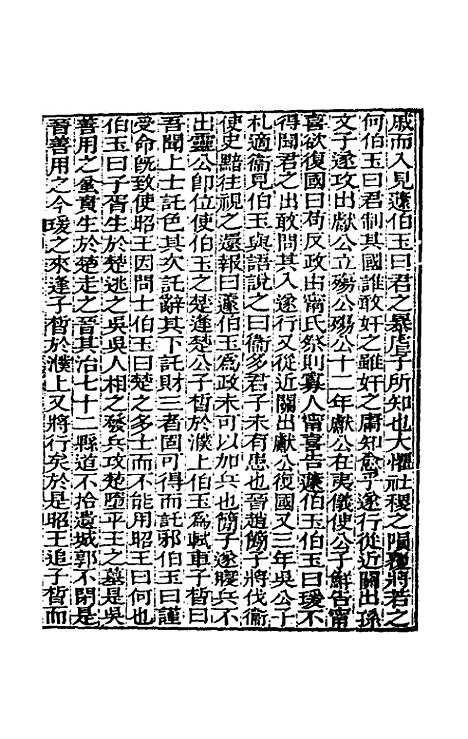 戚而入見蘧伯玉曰君之暴虐子所知也大懼社稷之隕穫將若之
何伯玉曰君制其國誰敢奸之雖奸之庸知愈乎遂行從近關出孫
文子遂攻出獻公立殤公殤公十二年獻公在夷儀使公子鮮告甯
喜欲復國曰苟反政由甯氏祭則寡人甯喜告蘧伯玉伯玉曰瑗不
得聞君之出敢問其入遂行又從近關出獻公復國又三年吳公子
札適衞見伯玉與語說之曰衞多君子未有患也晉趙簡子將伐衞
使史黯往視之還報曰蘧伯玉為政未可以加兵也簡子遂寢兵不
出靈公卽位使伯玉之楚逢楚公子晳於濮上伯玉為軾車子晳曰
吾聞上士託色其次託辭其下託財三者固可得而託邪伯玉曰謹
受命旣致使昭王因問士伯玉曰楚之多士而不能用昭王曰何也
伯玉曰子胥生於楚逃之吳吳人相之發兵攻楚墮平王之墓是吳
善用之釁蚡生於楚走之晉其治七十二縣道不拾遺城郭不閉是
晉善用之今瑗之來逢子晳於濮上又將行矣於是昭王追子晳而